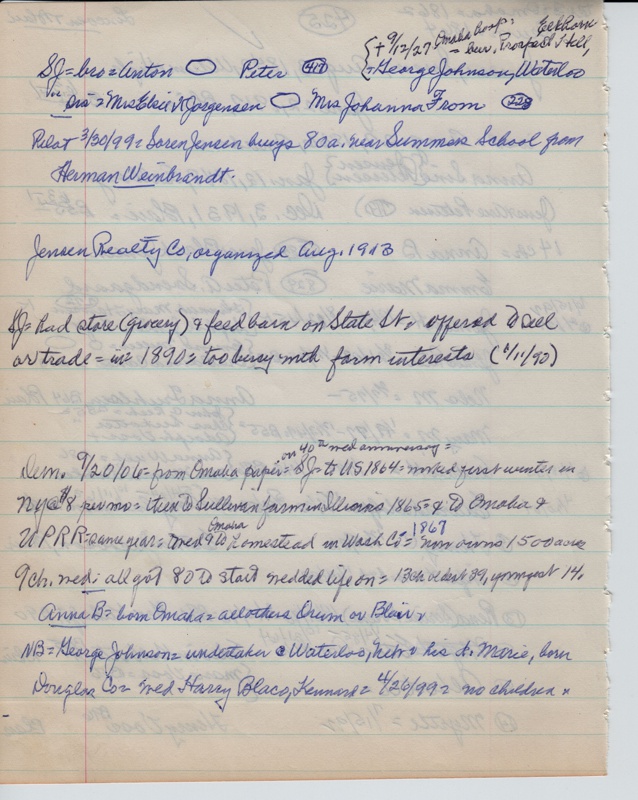 {+ 9/12/27 Omaha hosp = Elkhorn
= bur. Prospect Hill,
SJ = bro = Anton Peter 419 {= George Johnson, Waterloo
" sis = Mrs Elsie N Jorgensen Mrs Johanna From 228
Pilot 3/30/99 = Soren Jensen buys 80 a. near Summers School from
Herman Weinbrandt.
Jensen Realty Co, organized Aug. 1913
SJ = had store (grocery) & feed barn on State St, offered to sell
or trade = in 1890 = too busy with farm interests ( /11/90)
on 40th wed anniversary =
Dem. 9/20/06 = from Omaha paper = SJ = to US 1864 = worked first winter in
NY @ $8 per mo = then to Sullivan farm in Illinois 1865 = & to Omaha &
UPRR = same year = wed Omaha & to homestead in Wash Co = 1867 now owns 1500 acres
9 ch. wed; all got 80 to start wedded life on = 13 ch oldest 39, youngest 14.
Anna B = born Omaha = all others Orum or Blair.
NB = George Johnson = undertaker @ Waterloo, Neb. & his d. Marie, born
Douglas Co = wed Harry Blaco, Kennard = 4/26/99 = no children.